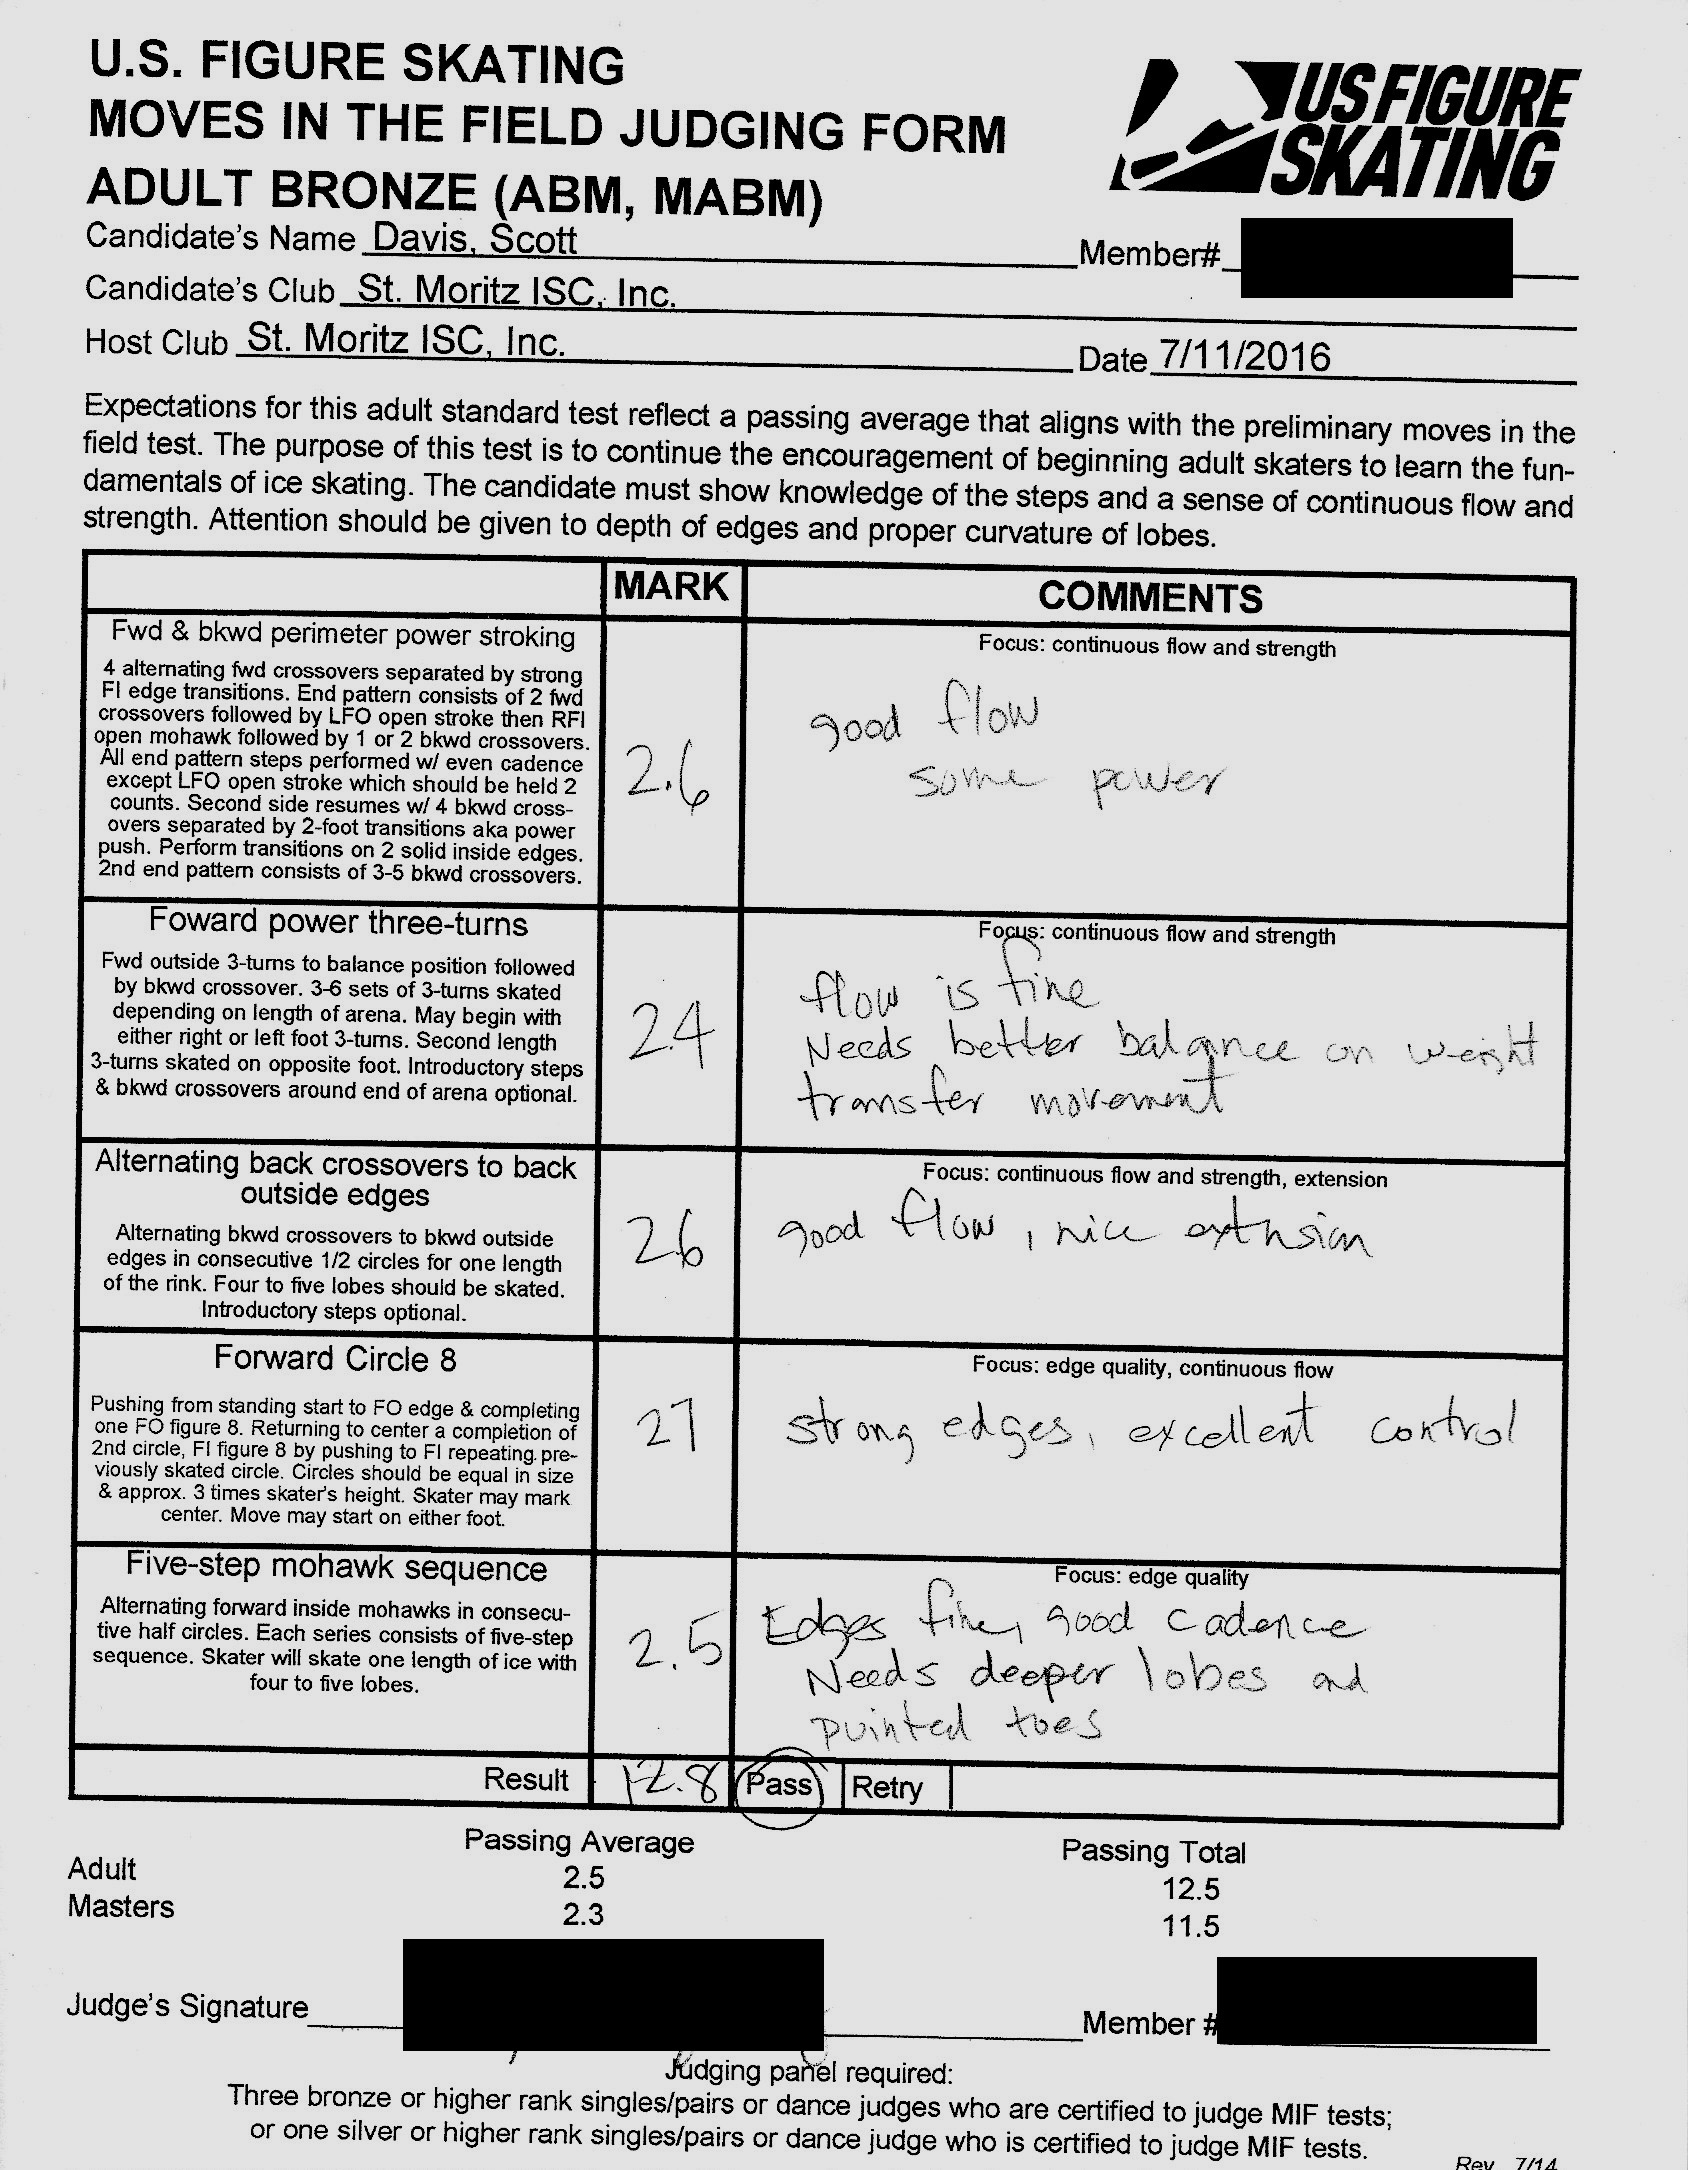 U.S. FIGURE SKATING
MOVES IN THE FIELD JUDGING FORM
ADULT BRONZE (ABM, MABM)
US FIGURE
SKATING
Candidate's Name Davis, Scott
Member#
Candidate's Club St. Moritz ISC, Inc.
Host Club St. Moritz ISC, Inc.
Date 7/11/2016
Expectations for this adult standard test reflect a passing average that aligns with the preliminary moves in the
field test. The purpose of this test is to continue the encouragement of beginning adult skaters to learn the fun-
damentals of ice skating. The candidate must show knowledge of the steps and a sense of continuous flow and
strength. Attention should be given to depth of edges and proper curvature of lobes.
MARK
COMMENTS
Fwd & bkwd perimeter power stroking
4 alternating fwd crossovers separated by strong
FI edge transitions. End pattern consists of 2 fwd
crossovers followed by LFO open stroke then RFI
open mohawk followed by 1 or 2 bkwd crossovers.
All end pattern steps performed w/ even cadence
except LFO open stroke which should be held 2
counts. Second side resumes w/ 4 bkwd cross-
overs separated by 2-foot transitions aka power
push. Perform transitions on 2 solid inside edges.
2nd end pattern consists of 3-5 bkwd crossovers.
2.6
Focus: continuous flow and strength
good flow
some power
Foward power three-turns
Fwd outside 3-turns to balance position followed
by bkwd crossover. 3-6 sets of 3-turns skated
depending on length of arena. May begin with
either right or left foot 3-turns. Second length
3-turns skated on opposite foot. Introductory steps
& bkwd crossovers around end of arena optional.
2.4
Focus: continuous flow and strength
flow is fine
Needs better balance on weight
transfer movement
Alternating back crossovers to back
outside edges
Alternating bkwd crossovers to bkwd outside
edges in consecutive 1/2 circles for one length
of the rink. Four to five lobes should be skated.
Introductory steps optional.
26
Focus: continuous flow and strength, extension
good flow, nice extension
Forward Circle 8
Pushing from standing start to FO edge & completing
one FO figure 8. Returning to center a completion of
2nd circle, FI figure 8 by pushing to FI repeating pre-
viously skated circle. Circles should be equal in size
& approx. 3 times skater's height. Skater may mark
center. Move may start on either foot.
27
Focus: edge quality, continuous flow
strong edges, excellent control
Five-step mohawk sequence
Alternating forward inside mohawks in consecu-
tive half circles. Each series consists of five-step
sequence. Skater will skate one length of ice with
four to five lobes.
2.5
Focus: edge quality
Edges fine, good cadence
Needs deeper lobes and
pointed toes
Result 12.8 Pass Retry
Passing Average
Passing Total
Adult 2.5 12.5
Masters 2.3 11.5
Judge's Signature
Member #
Judging panel required:
Three bronze or higher rank singles/pairs or dance judges who are certified to judge MIF tests;
or one silver or higher rank singles/pairs or dance judge who is certified to judge MIF tests.
Rev 7/14